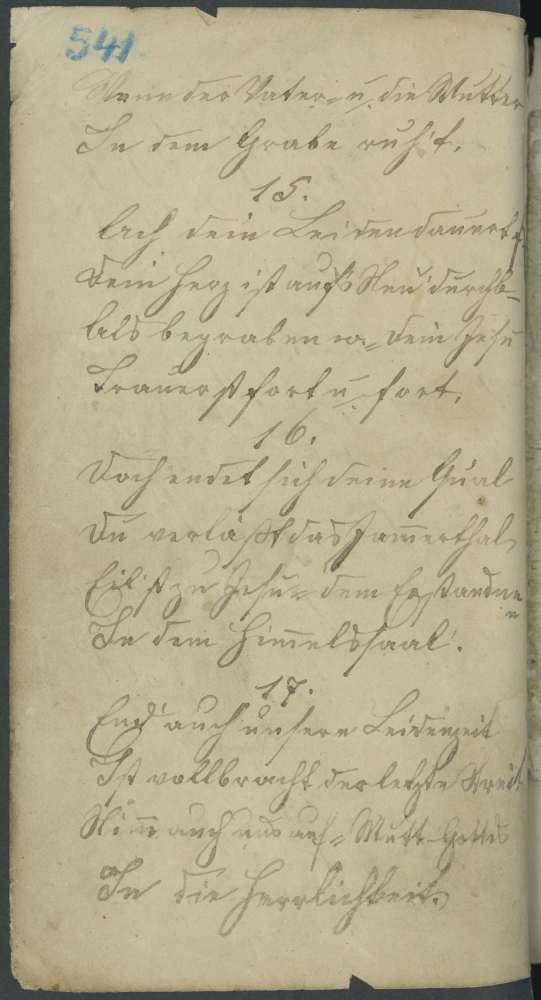 541
Wenn der Vater u. die Mutter
In dem Grabe ruh't.
15.
Ach dein Leiden dauert f
Dein Herz ist auf's Neu' durchb=
Als begraben wa= dein Jesu
Trauerst fort u. fort.
16.
Doch endet sich deine Qual
Du verläßt das Jam̅erthal
Eilst zu Jesu= dem Erstandnen
In dem Him̅elssaal.
17.
End' auch unsere Leidenzeit
Ist vollbracht der letzte Streit
Nim̅ auch uns auf= Mutt Gottes
In die Herrlichkeit.